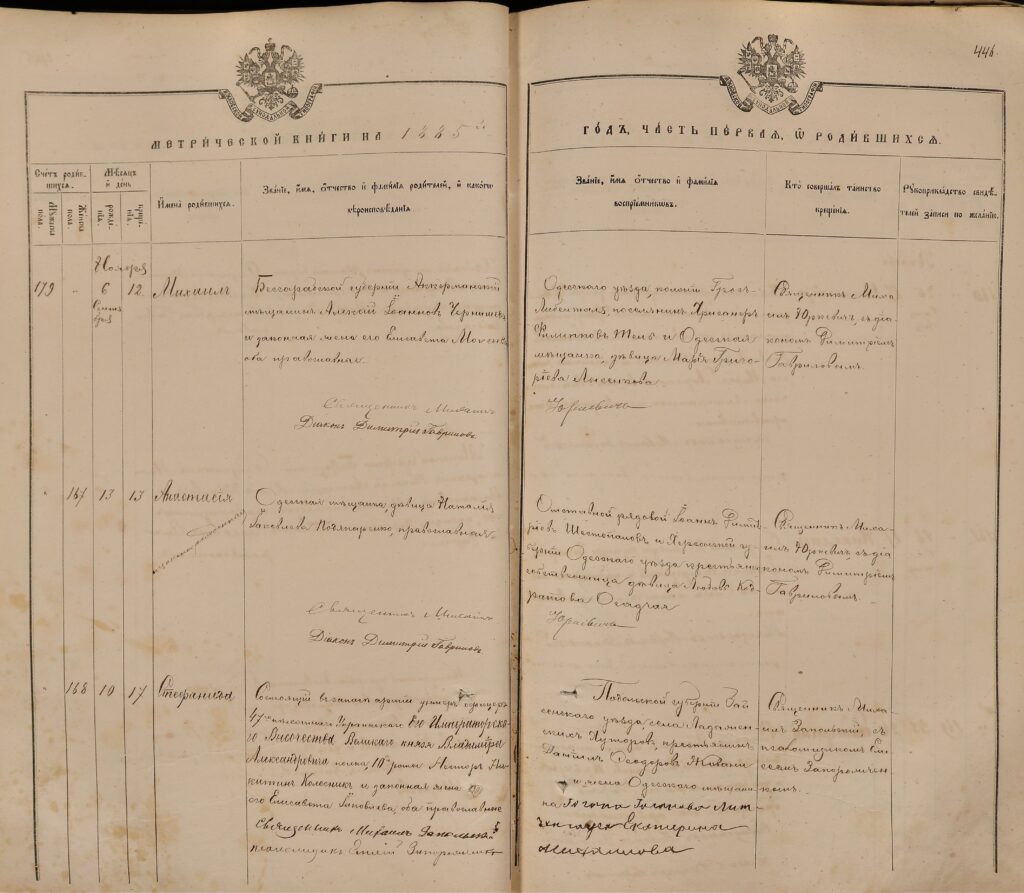 446.
МЕТРИЧЕСКОЙ КНИГИ НА 1885й
ГОДЪ, ЧАСТЬ ПЕРВАЯ, Ѡ РОДИВШИХСЯ.
Счетъ родив-
шихся.
Мѣсяцъ
и день
Мужеска
пола.
Женска
пола.
рожде-
нія.
креще-
нія.
Имена родившихся.
Званіе, имя, отчество и фамилія родителей, и какого
вѣроисповѣданія.
Званіе, имя отчество и фамилія
воспріемниковъ.
Кто совершалъ таинство
крещенія.
Рукоприкладство свидѣ-
телей записи по желанію.
Ноября
179 6 12 Михаилъ
Бессарабской губерніи Аккерманскій
мѣщанинъ Алексій Іоанновъ
и законная жена его Елисавета
оба православные.
Священникъ Михаилъ
Діаконъ Димитрій Гавриловъ
Одесскаго уѣзда, колоніи Гросъ-
Либенталя, поселянинъ
Филипповъ и Одесская
мѣщанка, дѣвица Марія Григо-
ріева Лысенкова.
Юркевичъ
Священникъ Миха-
илъ Юркевичъ, съ діа-
кономъ Димитріемъ
Гавриловымъ.
167 13 13 Анастасія
Одесская мѣщанка, дѣвица Наталія
Яковлева православная.
Священникъ Михаилъ
Діаконъ Димитрій Гавриловъ
Отставной рядовой Іоаннъ Димит-
ріевъ и Херсонской гу-
берніи Одесскаго уѣзда крестьянка
собственница дѣвица Любовь Код-
ратова Осадчая
Юркевичъ
Священникъ Миха-
илъ Юркевичъ, съ діа-
кономъ Димитріемъ
Гавриловымъ.
168 10 17 Стефанида
Состоящій въ запасѣ арміи унтеръ офицеръ
47го пѣхотнаго Украинскаго Его Императорска-
го Высочества Великаго князя Владиміра
Александровича полка, 10й роты Несторъ Ни-
китинъ Колесникъ и законная жена
его Елисавета оба православные
Священникъ Михаилъ Запольскій
псаломщикъ
Подольской губерніи Гай-
сенскаго уѣзда, села Ладыжен-
скихъ Хуторовъ, крестьянинъ
Даніилъ Феодоровъ
и жена Одесскаго мѣщани-
на
Екатерина
Михайлова
Священникъ Миха-
илъ Запольскій, съ
псаломщикомъ Ели-